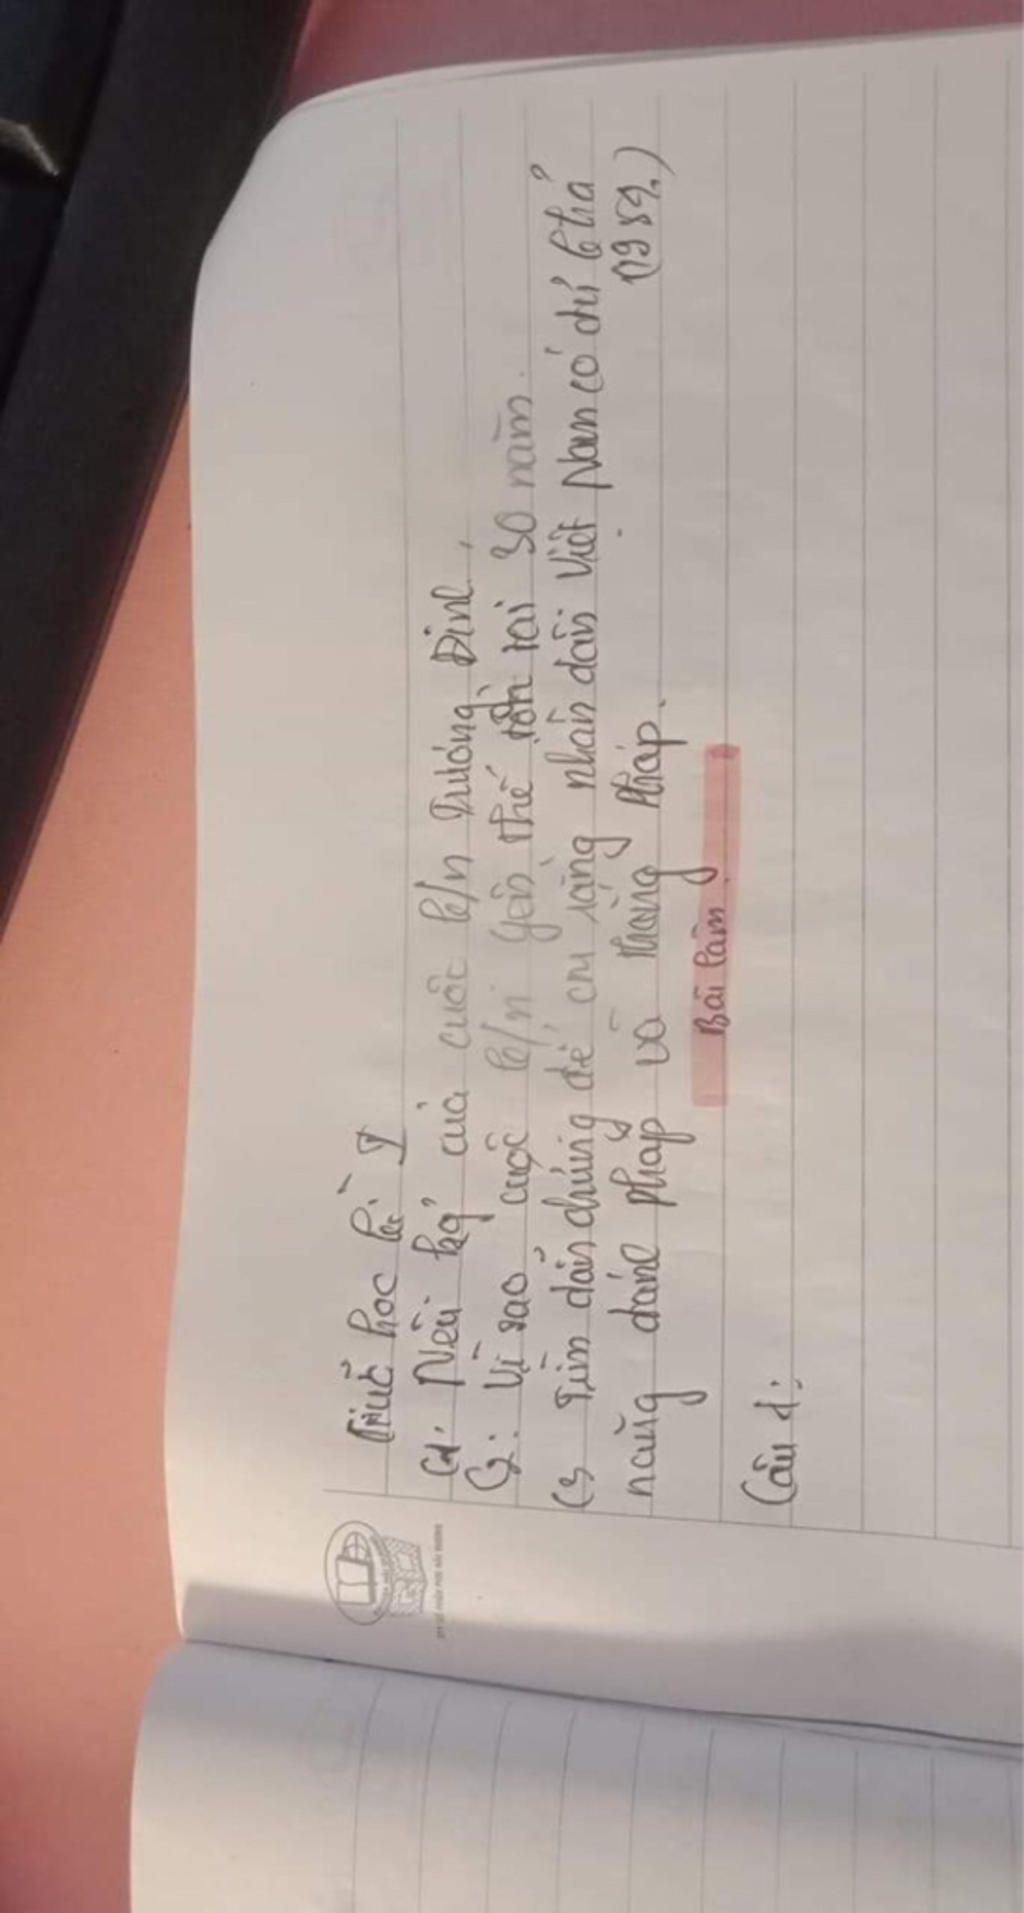 Thức học kì I
C1: Nêu kq' của cuộc k/n Trương Định.
C2: Vì sao cuộc k/n Yên thế tồn tại 30 năm.
C3 Tìm dẫn chứng để cm rằng nhân dân Việt Nam có đủ khả
năng đánh pháp và thắng Pháp.
Bài làm
Câu 1: